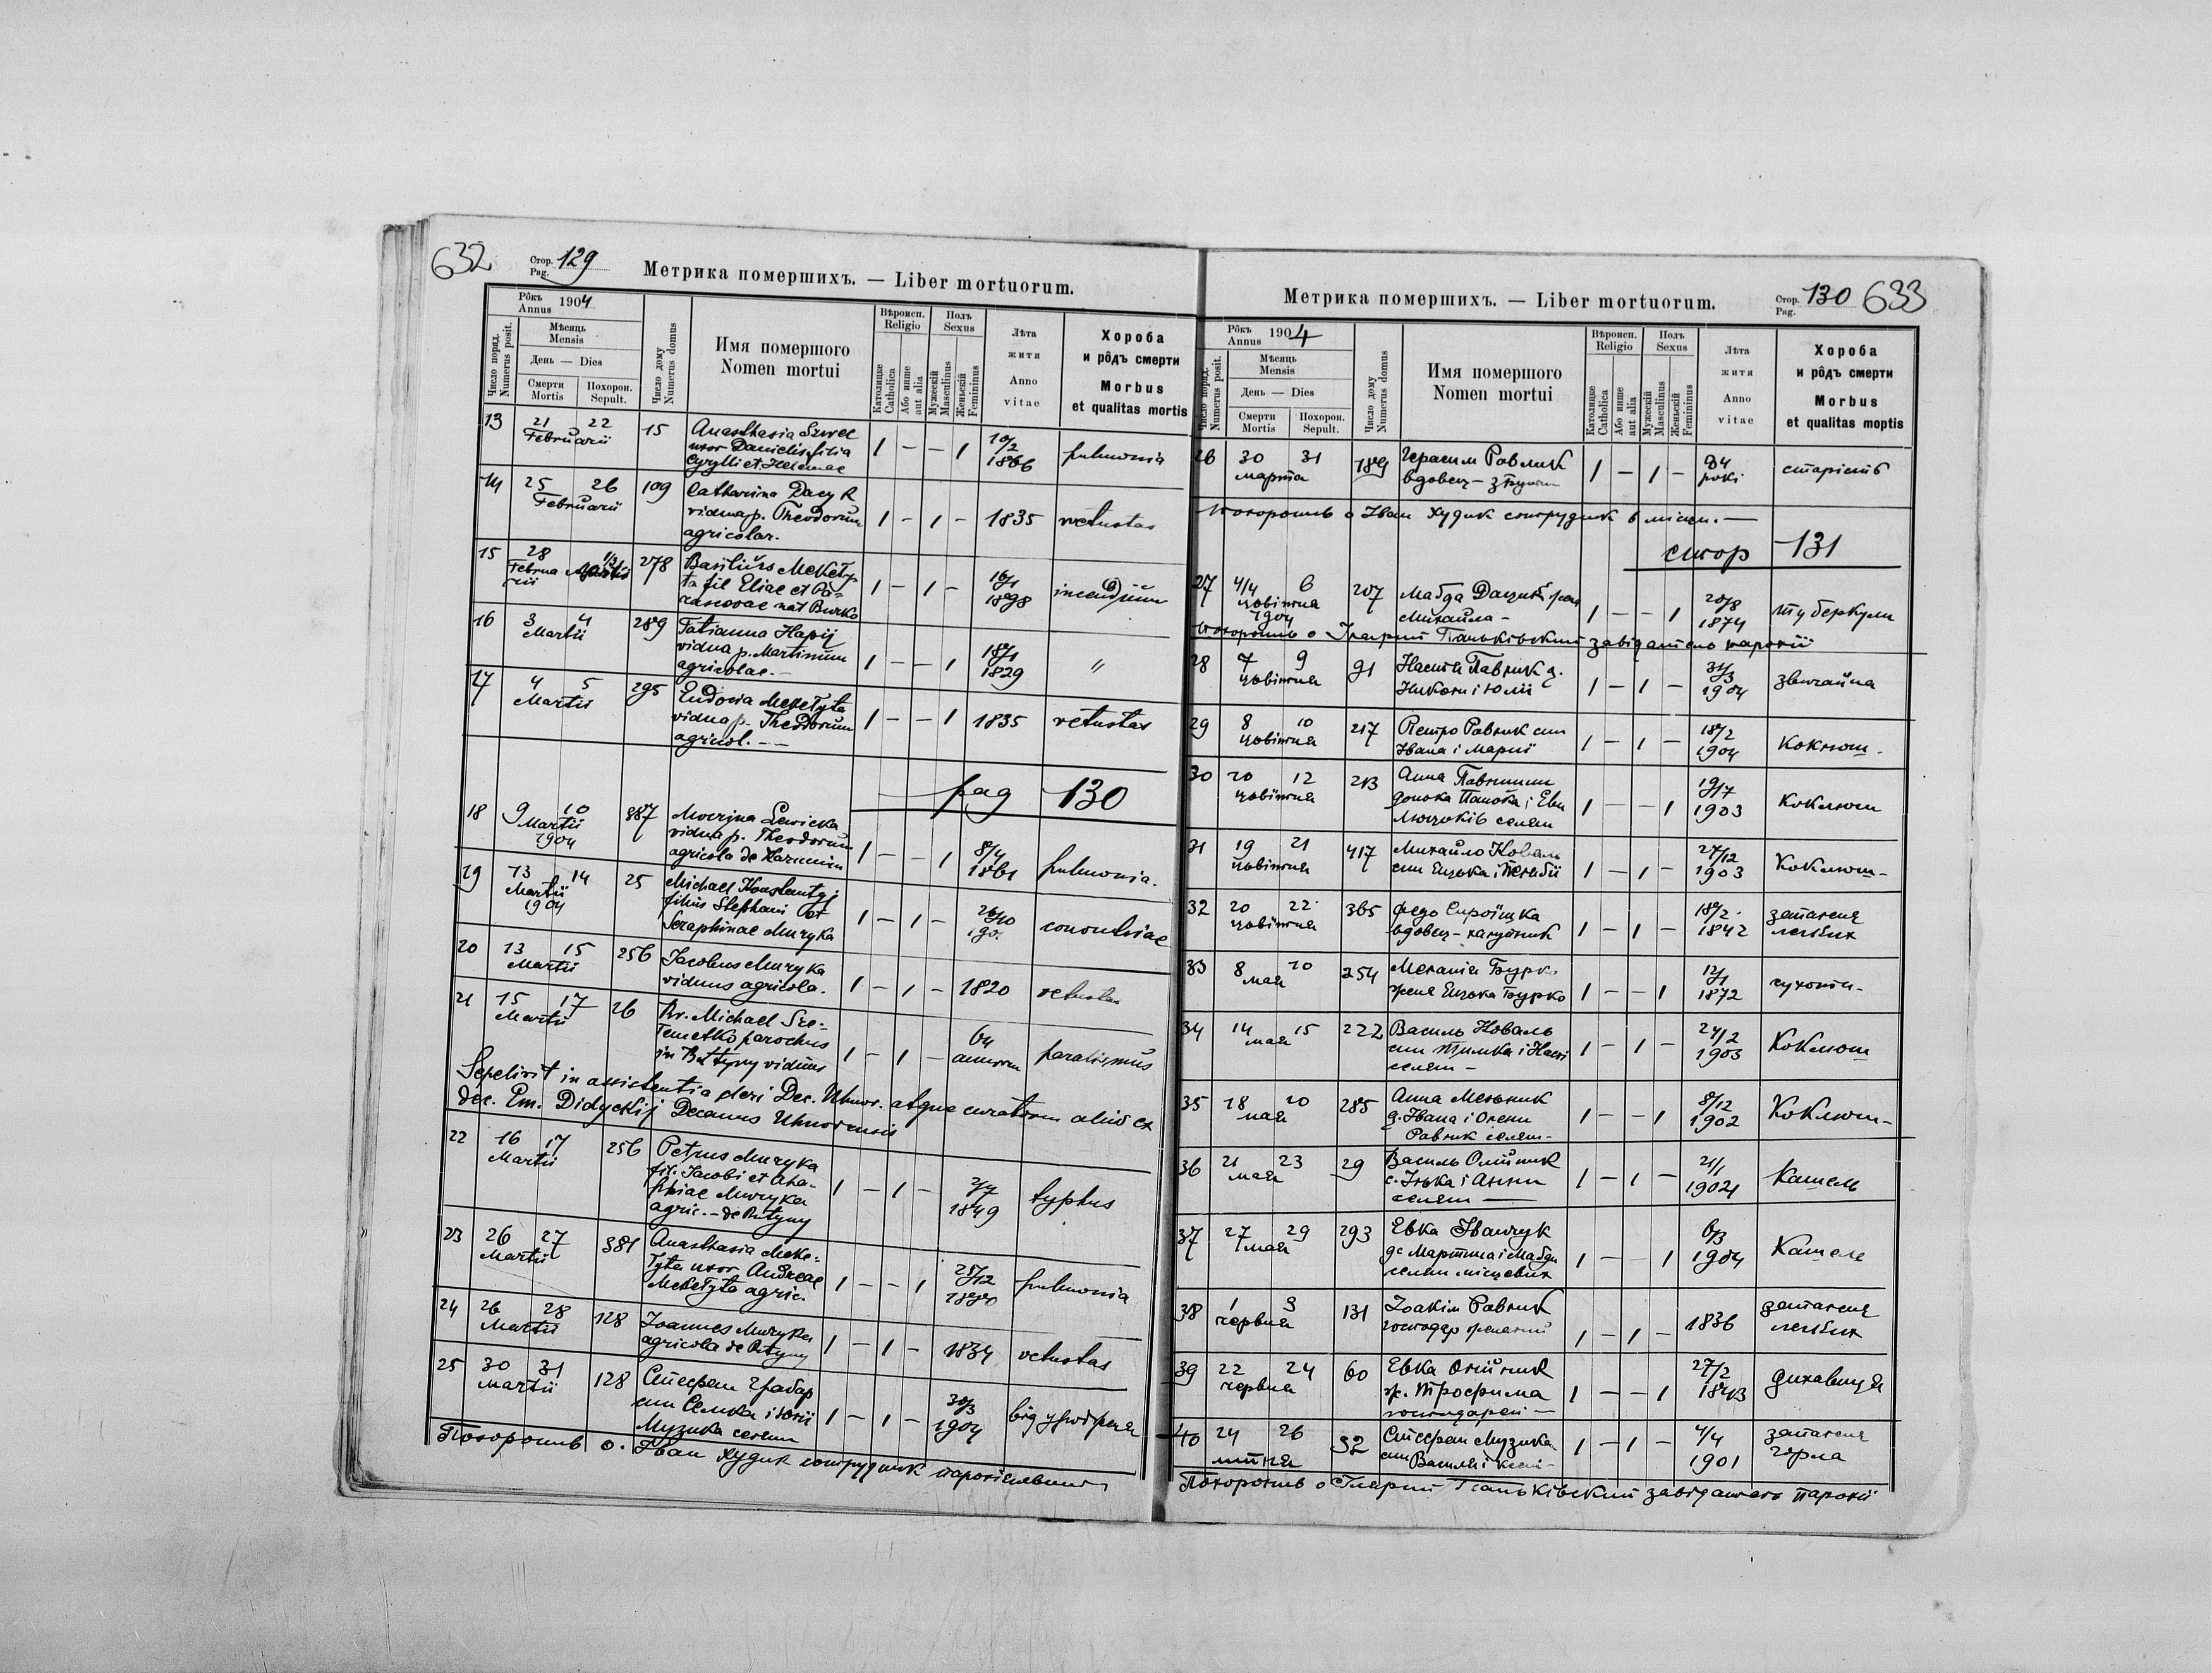 632
Стор. Pag. 129
Метрика помершихъ. — Liber mortuorum.
Рôкъ Annus 1904
Число поряд. Numerus posit.
Мѣсяць Mensis
День — Dies
Смерти Mortis
Похорон. Sepult.
Число дому Numerus domus
Имя помершого Nomen mortui
Вѣроисп. Religio
Католицке Catholica
Або инше aut alia
Полъ Sexus
Мужескій Masculinus
Женьскій Femininus
Лѣта житя Anno vitae
Хороба и рôдъ смерти Morbus et qualitas mortis
13 21 22 15 Anasthasia Szwec 1 — — 1 10/2 pulmonia
Februarii uxor Danielis filia 1866
Cyrylli et Helenae
14 25 26 109 Catharina Dacyk
Februarii vidua p. Theodorum 1 - 1 - 1835 vetustas
agricolar.
15 28 278 Basilius Mekety-
Februa Martii ta fil Eliae et Pa- 1 - 1 - 16/1 incendium
rii rascevae nat Burko 1898
16 3 4 289 Tatianna Hapij
Martii vidua p. Martinum 1 - - 1 18/1 "
agricolae. — 1829
17 4 5 295 Eudocia Mekety​ta
Martii vidua p. Theodorum 1 - - 1 1835 vetustas
agricol. - -
pag 130
18 9 10 387
Martii vidua p. Theodorum
1904 agricola de 1 - - 1 8/4 1861 pulmonia.
19 13 14 25 Michael Konstantyj
Martii filius Stephani et 1 - 1 - 26/10
1904 Seraphinae Muzyka 190. convulsiae
20 13 15 256 Jacobus Muzyka
Martii viduus agricola. 1 - 1 - 1820 vetustas
21 15 17 26 Rv. Michael Sze-
Martii metko parochus 64
in Butyny viduus 1 - 1 - annorum paralismus
Sepelivit in assistentia cleri Dec. Uhnov. atque curatorum aliis ex
dec. Em. Didyckij Decanus Uhnoviensis
22 16 17 256 Petrus Muzyka
Martii fil. Jacobi et Aha-
phiae Muzyka 1 - 1 - 2/7 typhus
agric. - de Butyny 1849
23 26 27 381 Anasthasia Meke-
Martii tyta uxor Andreae 1 - - 1 25/12 pulmonia
Meketyta agric.
24 26 28 128 Joannes Muzyka
Martii agricola de Butyny 1 - 1 - 1834 vetustas
25 30 31 128 Стефан Грабар
Martii син Семка і Юлії 1 - 1 - 30/3 від уродженя
Музика селян 1904
Похоронив о. Іван Худик сотрудник
Метрика помершихъ. — Liber mortuorum.
Стор. Pag. 130 633
Рôкъ Annus 1904
Число поряд. Numerus posit.
Мѣсяць Mensis
День — Dies
Смерти Mortis
Похорон. Sepult.
Число дому Numerus domus
Имя помершого Nomen mortui
Вѣроисп. Religio
Католицке Catholica
Або инше aut alia
Полъ Sexus
Мужескій Masculinus
Женьскій Femininus
Лѣта житя Anno vitae
Хороба и рôдъ смерти Morbus et qualitas moptis
26 30 31 189 Герасим Равлик 1 — 1 — 94 старість
марта вдовец — з Бутин рокі
Похоронив о Іван Худик сотрудник в місци. —
стор 131
27 4/4 6 207 Мавда Дацик жена 1 — — 1 20/8 туберкули
цьвітня 1904 Михайла — 1874
Похоронив о Іларий Паньківский завідатель парохії
28 7 9 91 Настя Павлик д. 1 — 1 — 31/3 звичайна
цьвітня Николи і Юлії 1904
29 8 10 217 Петро Равлик син 1 — 1 — 18/2 Коклюш.
цьвітня Івана і Марії 1904
30 10 12 213 Анна
цьвітня донька Панька і Еви 1 — — 1 19/7 Коклюш
селян 1903
31 19 21 417 Михайло Коваль
цьвітня син Енька і 1 — 1 — 27/12 Коклюш-
1903
32 20 22 365 Федо Сироїшка 18/2 запаленя
цьвітня вдовец — халупник 1 — 1 — 1842 легких
33 8 10 254 Меланія Бурко 12/1
мая жена Енька Бурко 1 — — 1 1872 сухоти-
34 14 15 222 Василь Коваль 24/2
мая син Тимка і Насті 1 — 1 — 1903 Коклюш
селян —
35 18 20 285 Анна Мельник 8/12
мая д. Івана і Олени 1 — — 1 1902 Коклюш-
Равлик селян-
36 21 23 29 Василь Олійник 21/1
мая с. Ілька і Анни 1 — 1 — Кашель
селян —
37 27 29 293 Евка Іванчук 6/3
мая д. Мартина і Мавди 1 — 1 1904 Кашель
селян місцевих
38 1 3 131 Іоакім Равлик запаленя
червня господар жонатий 1 — 1 — 1836 легких
39 22 24 60 Евка Олійник 27/2
червня ж. Трофима 1 — — 1 1843 дихавиця
господарей —
40 24 26 32 Стефан Музика 1 — 1 — 4/4 запаленя
липня син Василя і Ксені- 1901 горла
Похоронив о Іларий Паньківский завідатель парохії